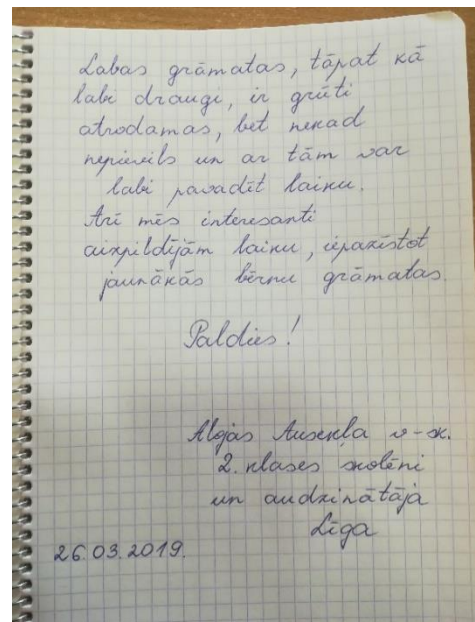 Labas grāmatas, tāpat kā
labi draugi, ir grūti
atrodamas, bet nekad
nepievils un ar tām var
labi pavadīt laiku.
Arī mēs interesanti
aizpildījām laiku, iepazīstot
jaunākās bērnu grāmatas.
Paldies!
Alojas Ausekļa v-sk.
2. klases skolēni
un audzinātāja
Līga
26.03.2019.